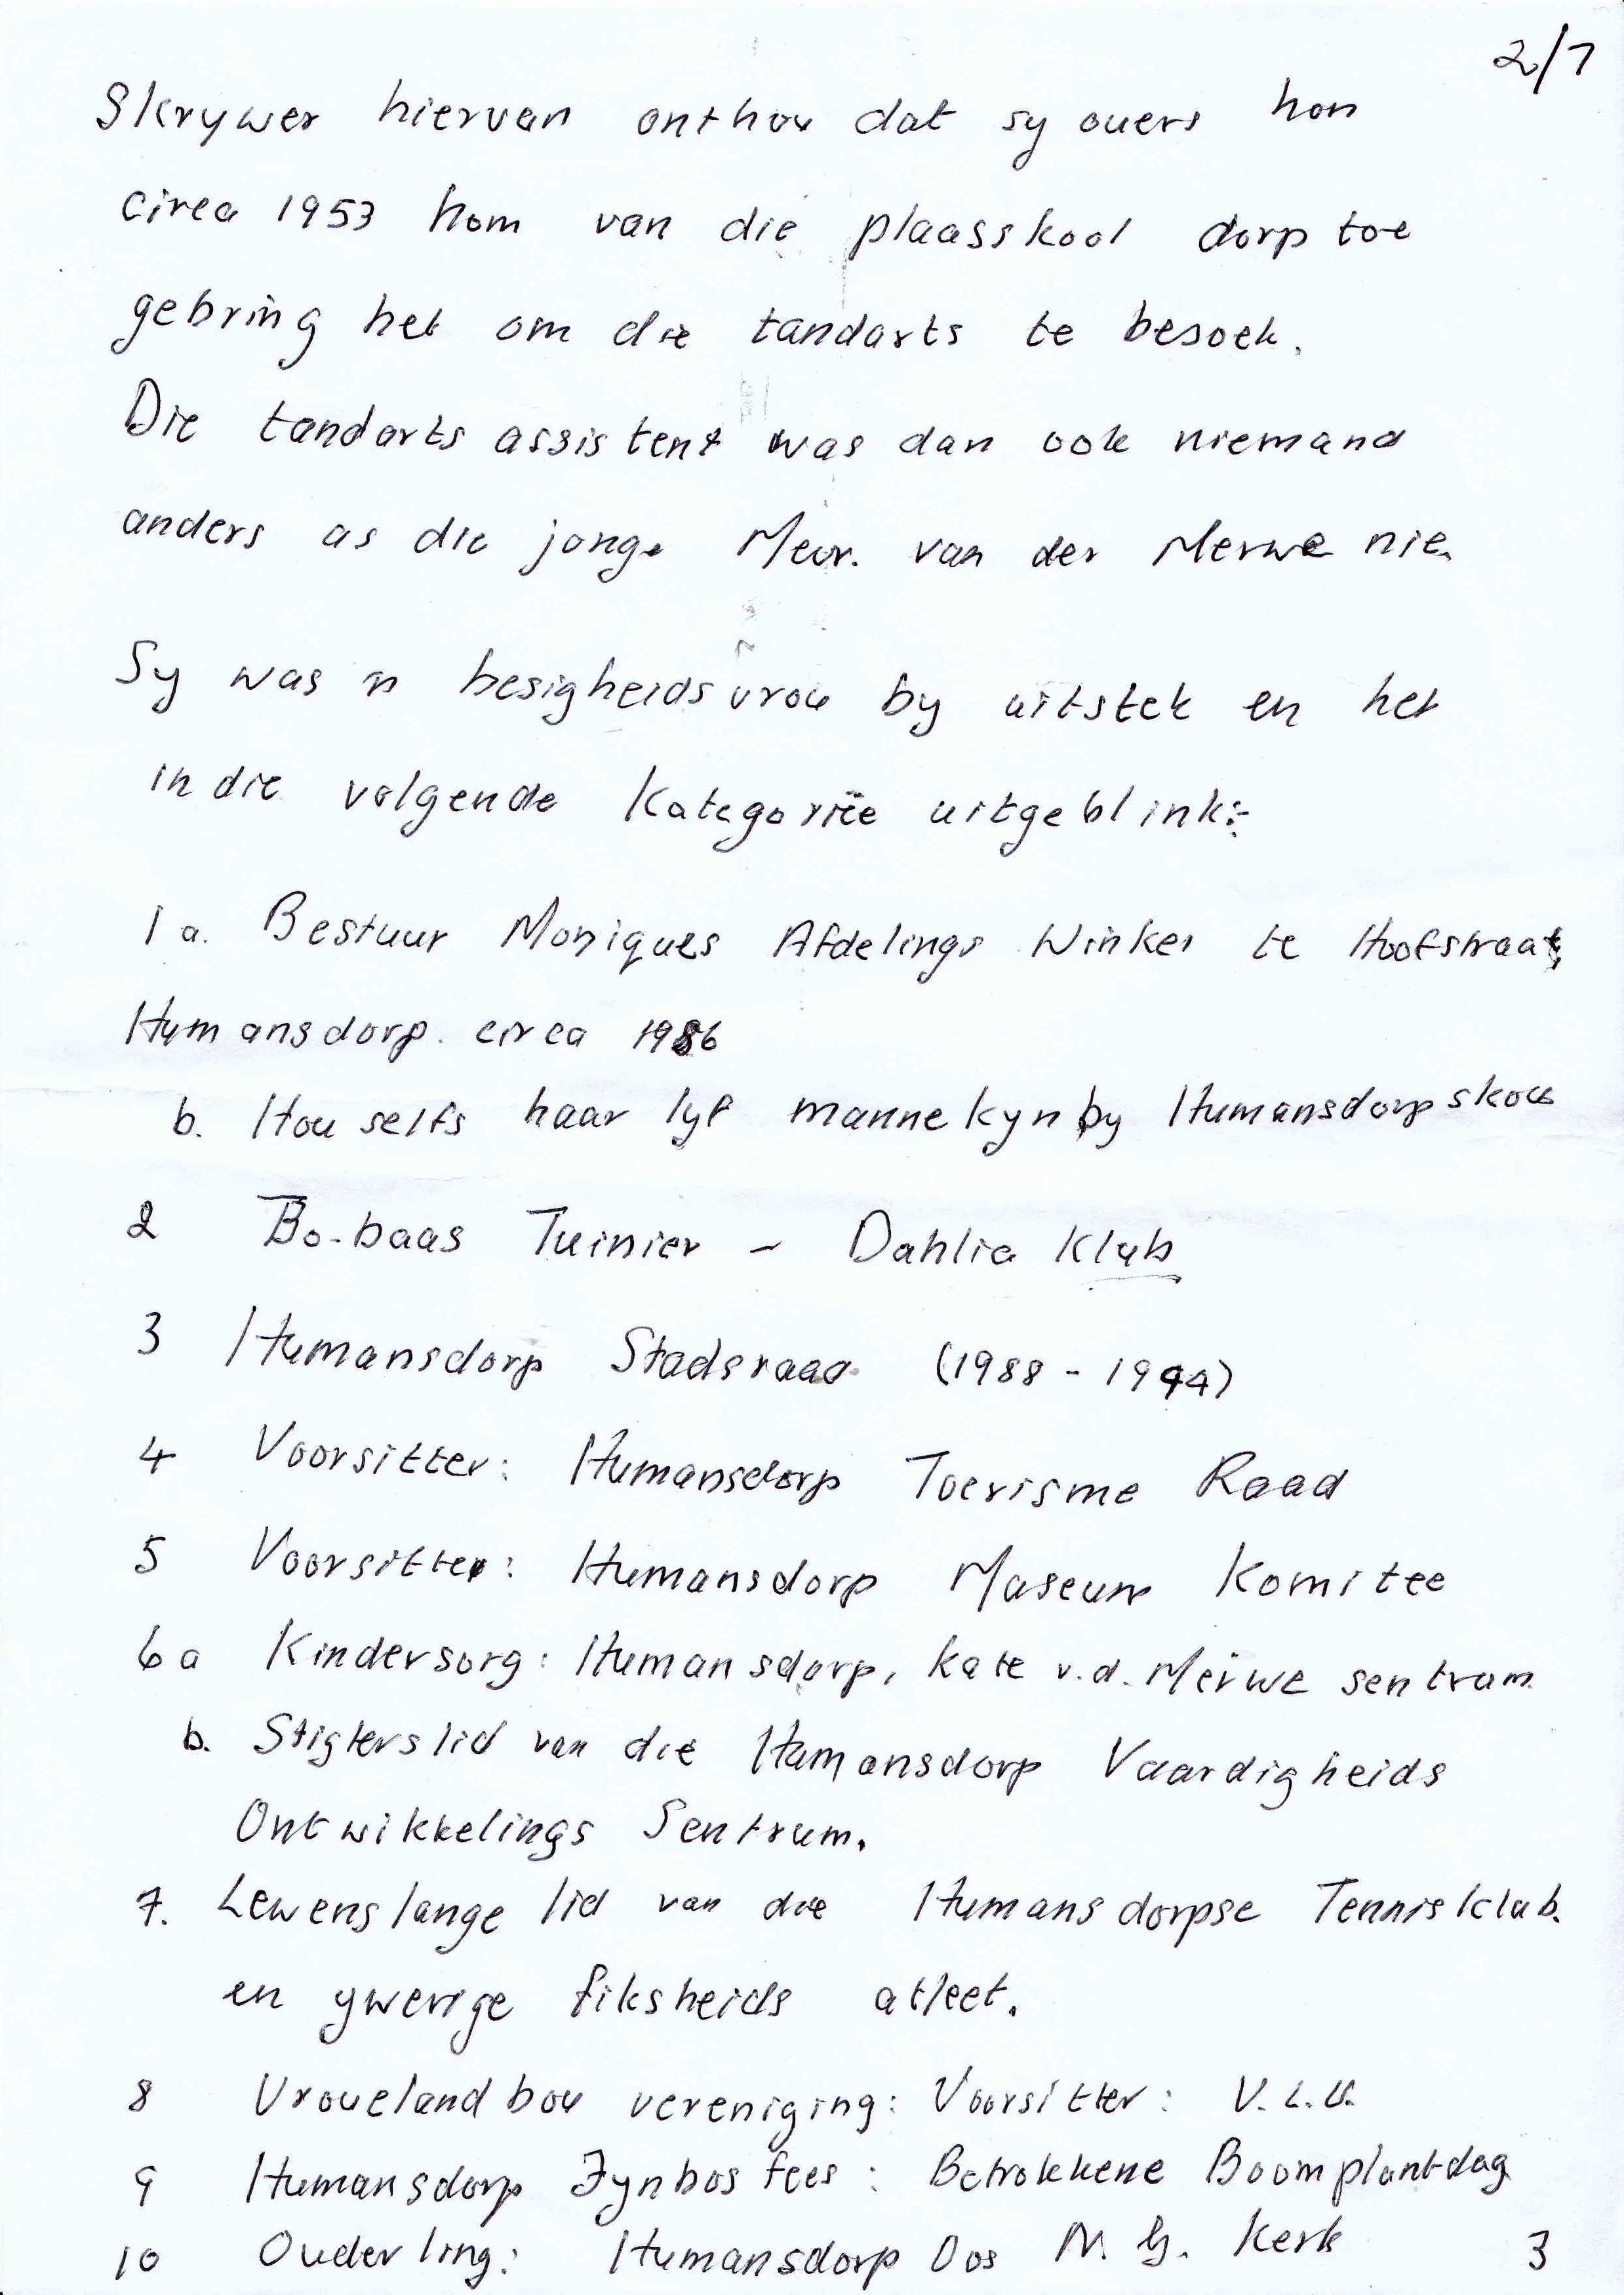 2/7
Skrywer hiervan onthou dat sy ouers hom
circa 1953 hom van die plaasskool dorp toe
gebring het om die tandarts te besoek.
Die tandarts assistent was dan ook niemand
anders as die jonge Mevr. van der Merwe nie.
Sy was 'n besigheidsvrou by uitstek en het
in die volgende Kategorïe uitgeblink:-
1 a. Bestuur Moniques Afdelings Winkel te Hoofstraat,
Humansdorp. circa 1986
b. Hou selfs haar lyf mannekyn by Humansdorp skou
2 Bo-baas Tuinier - Dahlia Klub
3 Humansdorp Stadsraad (1988 - 1994)
4 Voorsitter: Humansdorp Toerisme Raad
5 Voorsitter: Humansdorp Museum Komitee
6 a Kindersorg: Humansdorp, Kate v.d. Merwe sentrum.
b. Stigterslid van die Humansdorp Vaardigheids
Ontwikkelings Sentrum.
7. Lewenslange lid van die Humansdorpse Tennisklub.
en ywerige fiksheids atleet.
8 Vrouelandbou vereniging: Voorsitter: V.L.V.
9 Humansdorp Fynbos fees: Betrokkene Boomplantdag
10 Ouderling: Humansdorp Oos N. G. Kerk
3